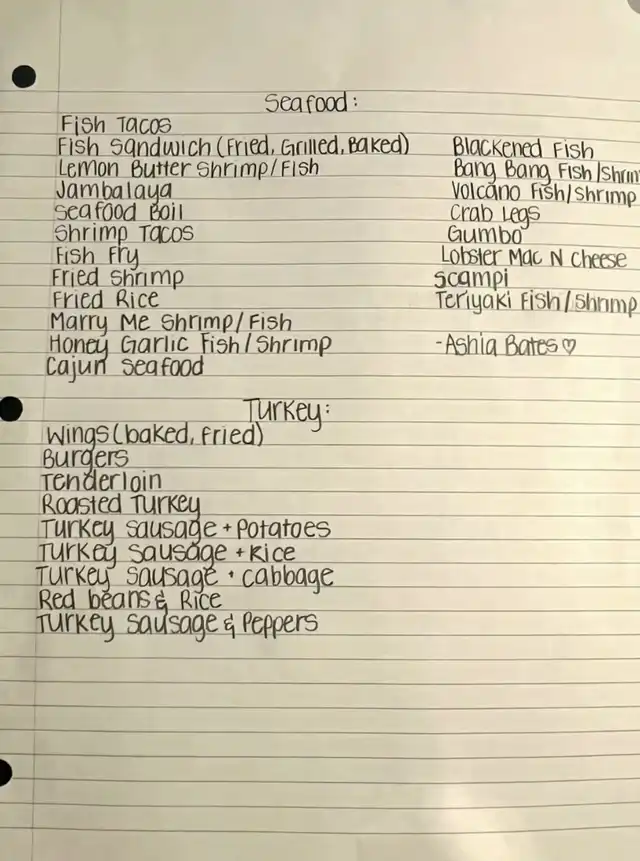 Seafood:
Fish Tacos
Fish Sandwich (Fried, Grilled, Baked)
Lemon Butter Shrimp/Fish
Jambalaya
Seafood Boil
Shrimp Tacos
Fish Fry
Fried Shrimp
Fried Rice
Marry Me Shrimp/Fish
Honey Garlic Fish/Shrimp
Cajun Seafood
Blackened Fish
Bang Bang Fish/Shrim
Volcano Fish/Shrimp
Crab Legs
Gumbo
Lobster Mac N Cheese
Scampi
Teriyaki Fish/Shrimp
-Ashia Bates♡
Turkey:
Wings (baked, fried)
Burgers
Tenderloin
Roasted Turkey
Turkey Sausage + Potatoes
Turkey Sausage + Rice
Turkey Sausage + Cabbage
Red beans & Rice
Turkey Sausage & Peppers